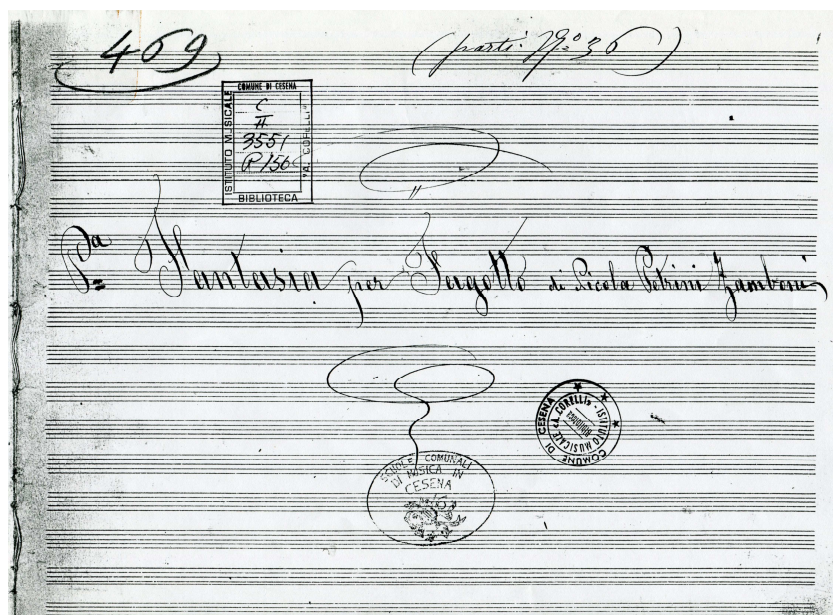 469
(parti: N.º 36)
COMUNE DI CESENA
ISTITUTO MUSICALE
"A. CORELLI"
C
II
3551
BIBLIOTECA
Pª Fantasia per Fagotto di Nicola Petrini Zamboni
COMUNE DI CESENA
"A. CORELLI" - ISTITUTO MUSICALE
SCUOLE COMUNALI
DI MUSICA IN
CESENA